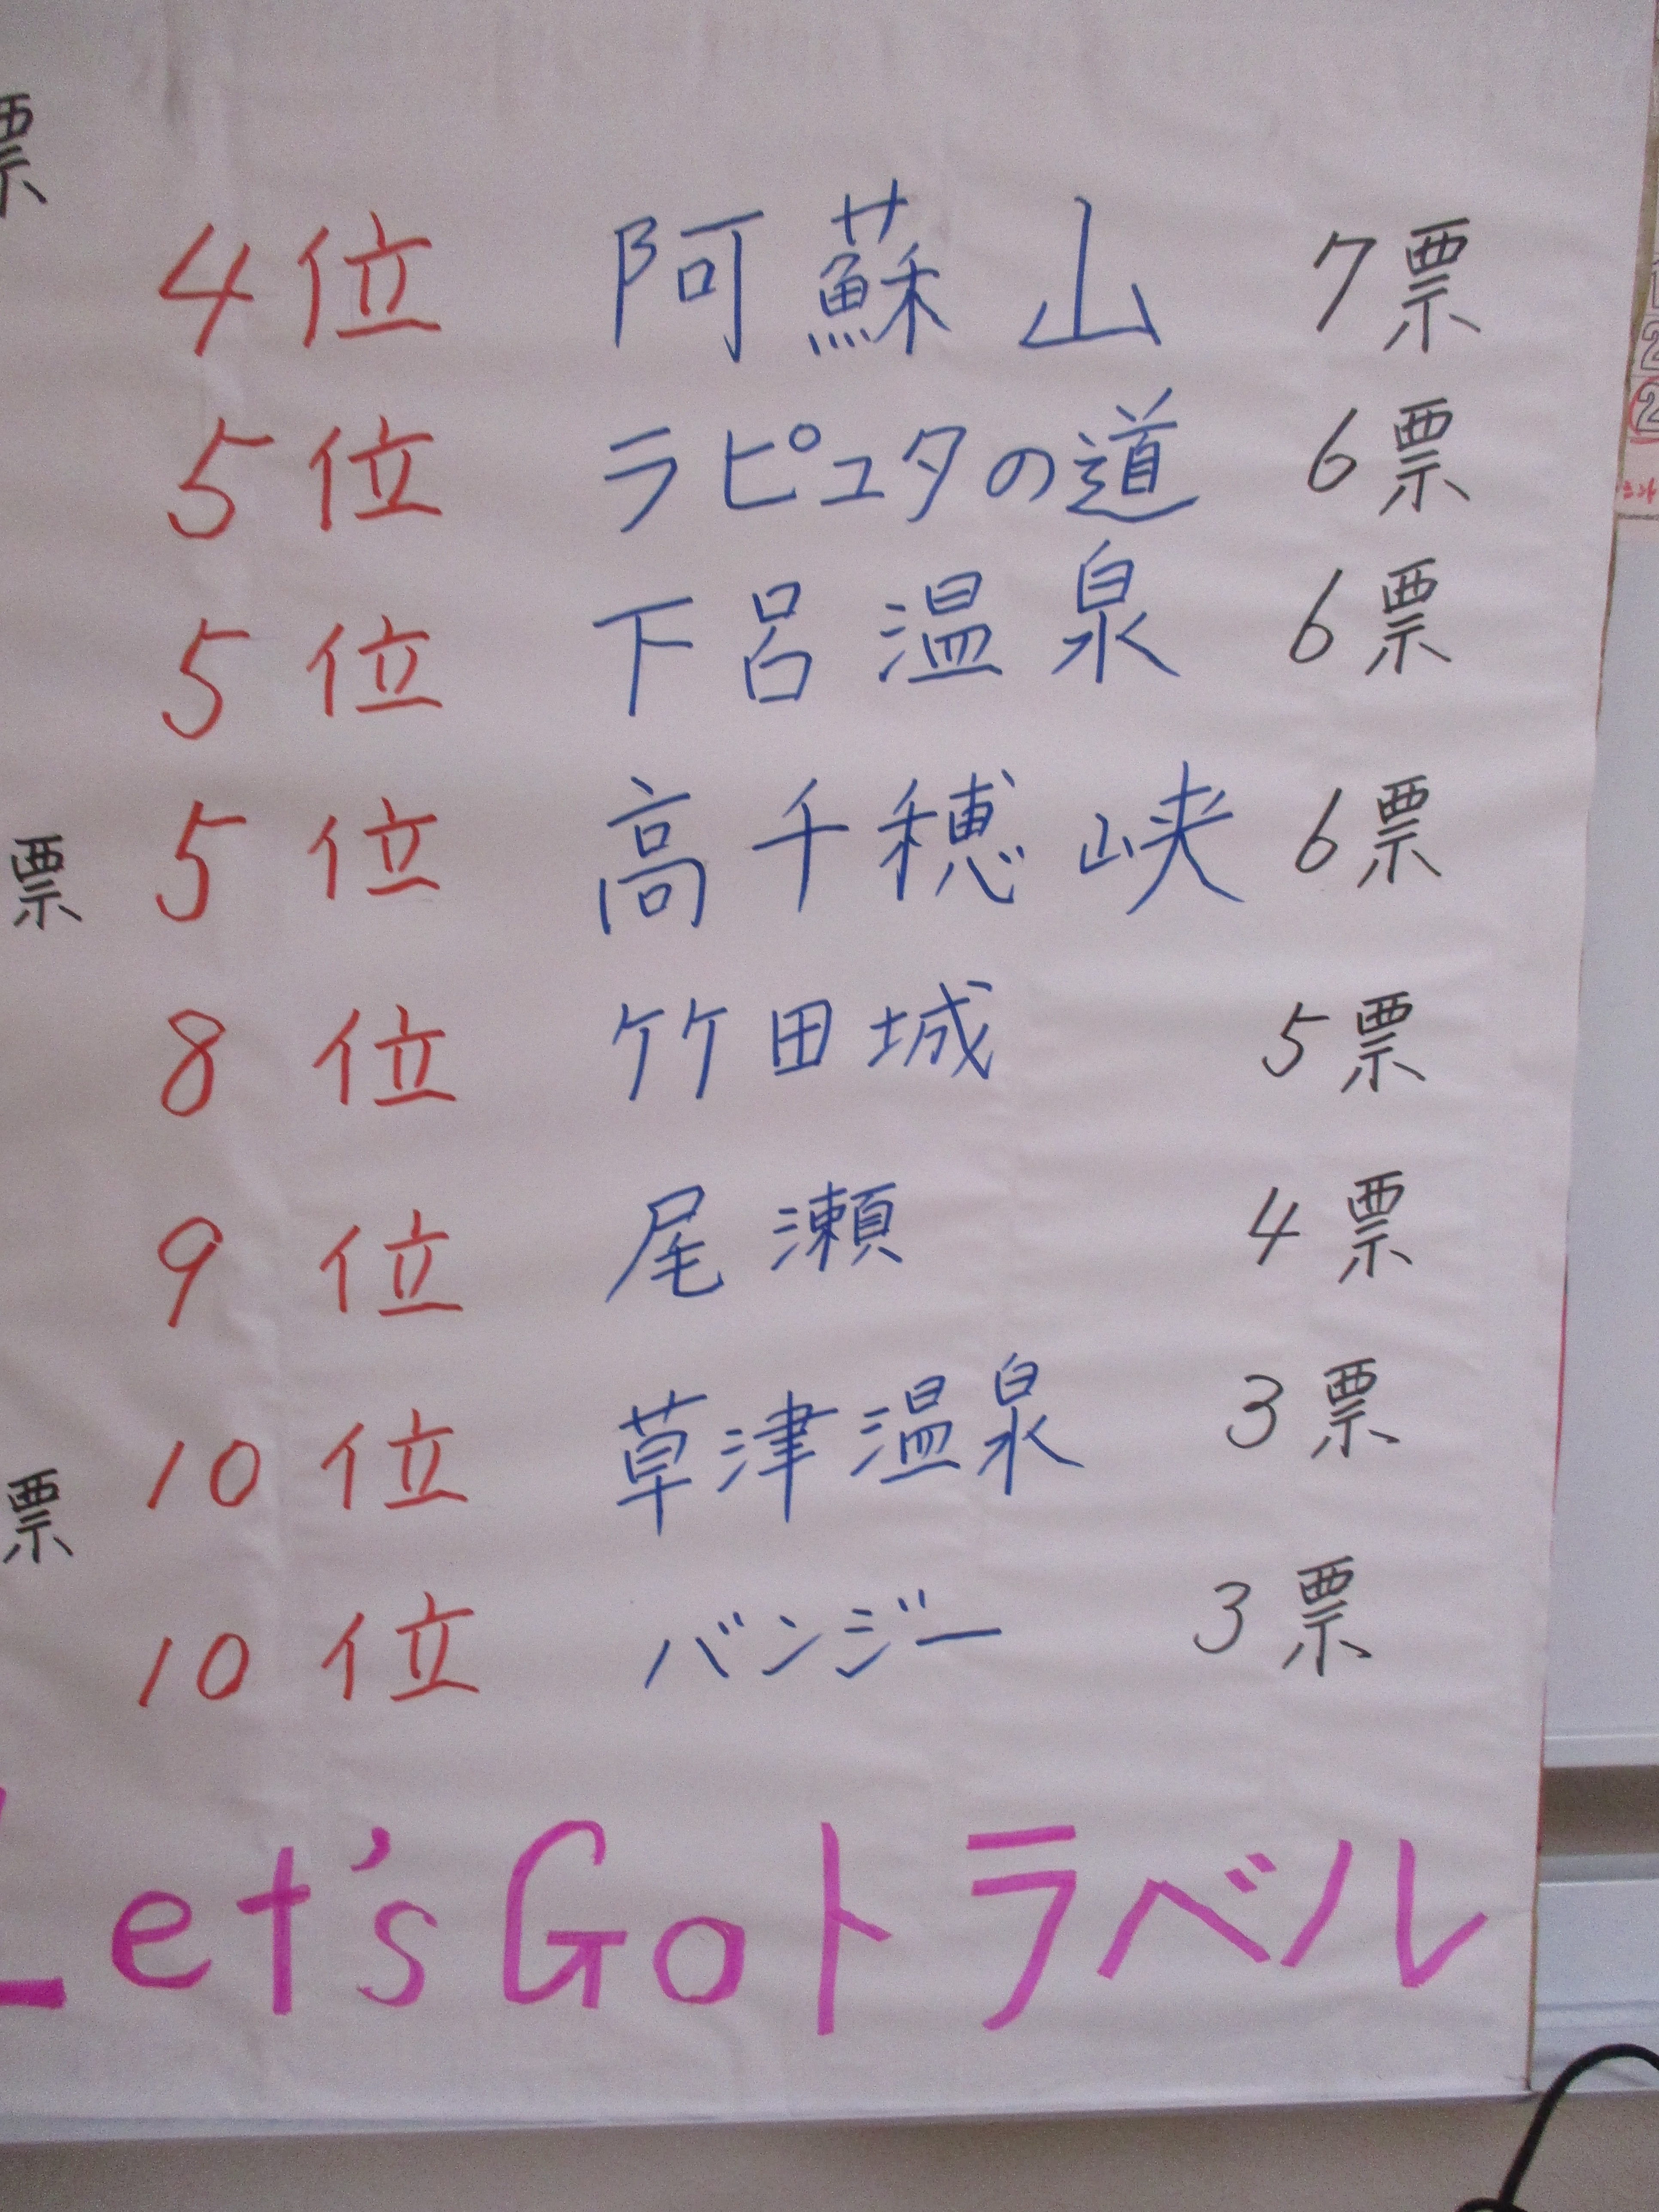 票
4位 阿蘇山 7票
5位 ラピュタの道 6票
5位 下呂温泉 6票
5位 高千穂峡 6票
票
8位 竹田城 5票
9位 尾瀬 4票
10位 草津温泉 3票
票
10位 バンジー 3票
Let's Go トラベル